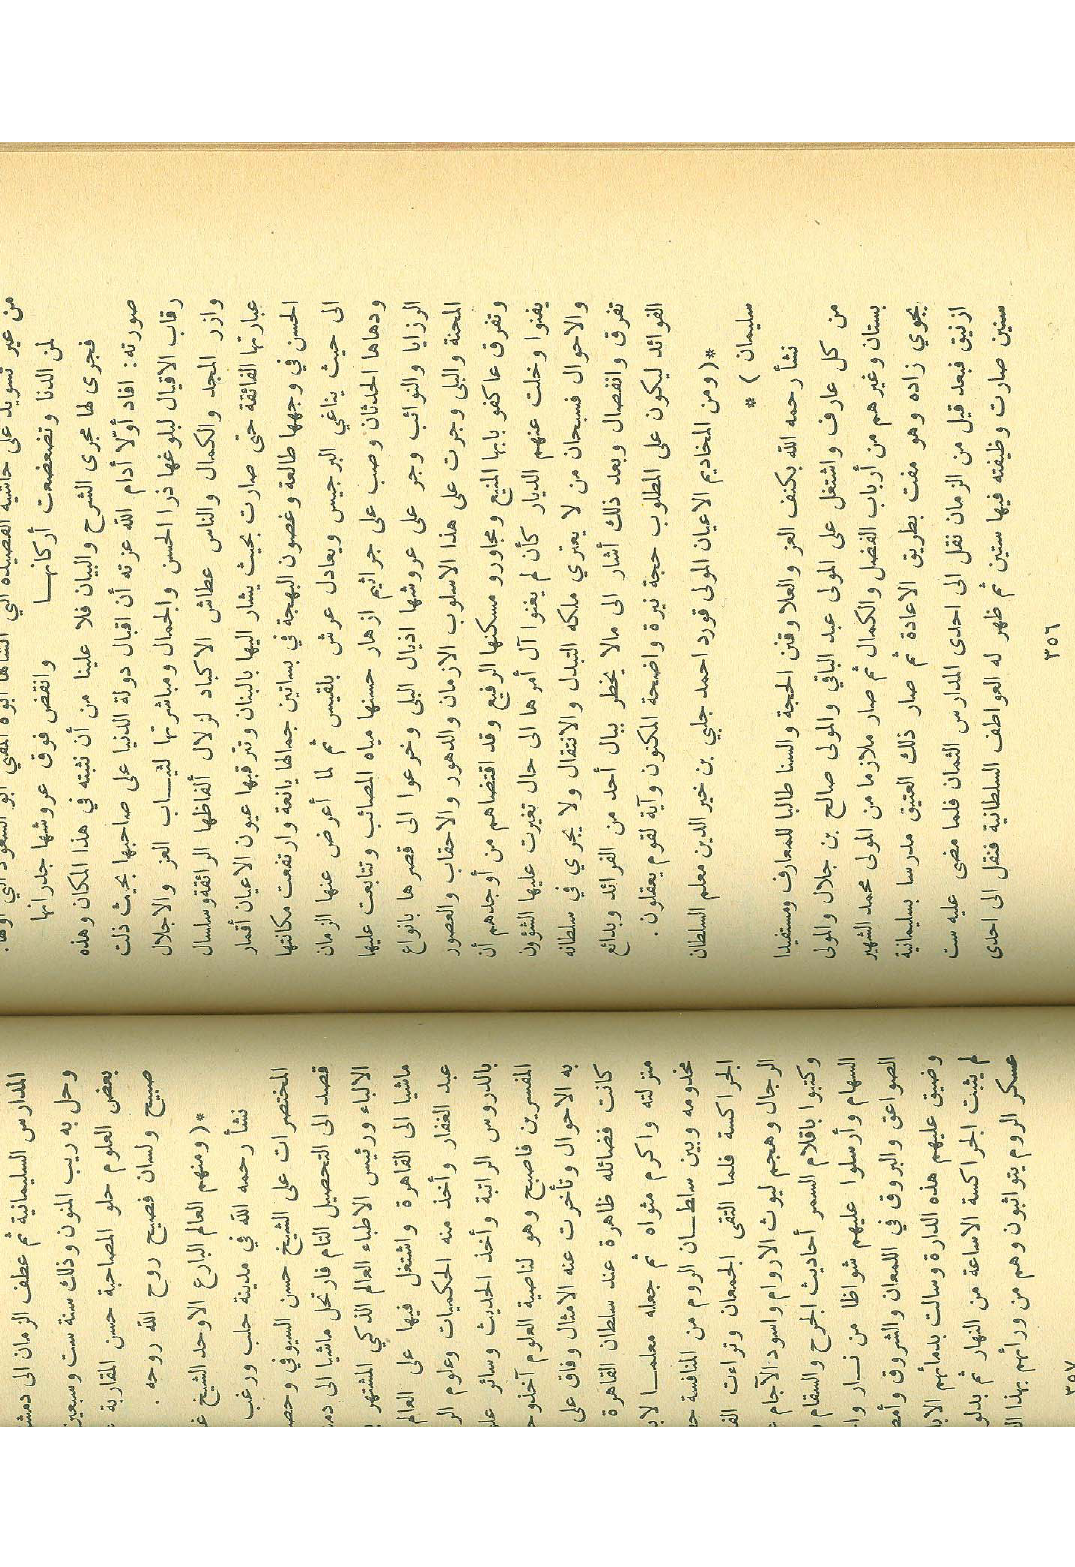 من غير تسويد على حاشية القصيدة التي انشأها ابوه المفتي ابو السعود التي أولها:
لمن الدنا وتضعضعت أركانها وانقض فوق عروشها جدرانها
فجرى لها مجرى الشرح والبيان فلا علينا من أن نثبته في هذا المكان وهذه
صورته: افاد أولا أدام الله عزته أن اقبال دولة الدنيا على صاحبها بحيث ذلت
رقاب الاقيال لبلوغها ذرا الحسن والجمال ومباشرتها لثياب العز والاجلال
وازر المجد والكمال والناس عطاش الاكباد لزلال ألفاظها الرائقة وسلسال
عبارتها الفائقة حتى صارت بحيث يشار اليها بالبنان وترقبها عيون الاعيان أقمار
الحسن في وجهها طالعة وغصون البهجة في بساتين جمالها يانعة وارتفعت مكانتها
الى حيث يناغي البرجيس ويعادل عرش بلقيس ثم لما أعرض عنها الزمان
ودهاها الحدثان وصب على جراثيم ازهار حسنها مياه المصائب وتتابعت عليها
الرزايا والنوائب وجر على عروشها اذيال البلى وخرعوا الى قصرها بانواع
المحنة والبلى وجرت على هذا الاسلوب الازمان والدهور والاحقاب والعصور
وتفرق عاكفو بابها المنيع ومجاورو مسكنها الرفيع وقد اقتضاهم من أوجدهم أن
يفنوا وخلت عنهم الديار كأن لم يغنوا آل أمرها الى حال تغيرت عليها الشؤون
والاحوال فسبحان من لا يعتري ملكه التبدل والانتقال ولا يجري في سلطانه
تفرق وانفصال وبعد ذلك أشار الى مالا يخطر ببال أحد من الفرائد وبدائع
الفوائد ليكون على المطلوب حجة نيرة واضحة المكنون وآية لقوم يعقلون.
*( ومن المخاديم الاعيان المولى قورد احمد جلبي بن خير الدين معلم السلطان
سليمان ) *
نشأ رحمه الله بكنف العز والعلا وقنن الحجة والسنا طالبا للمعارف ومستفيدا
من كل عارف واشتغل على المولى عبد الباقي والمولى صالح بن جلال والمولى
بستان وغيرهم من أرباب الفضل والكمال ثم صار ملازما من المولى محمد الشهير
بجوي زاده وهو مفت بطريق الاعادة ثم صار ذلك العتيق مدرسا بسليمانية
ازنيق فبعد قيل من الزمان نقل الى احدى المدارس الثمان فلما مضى عليه ست
سنين صارت وظيفته فيها ستين ثم ظهر له العواطف السلطانية فنقل الى احدى
٣٥٦
المدارس السليمانية ثم عطف الزمان الى
وحل به ريب المنون وذلك سنة ست وسبعين
بعض العلوم حلو المصاحبة حسن المقاربة
صبيح ولسان فصيح روح الله روحه.
*( ومنهم العالم البارع الاوحد الشيخ
نشأ رحمه الله في مدينة حلب ورغب
المختصرات على الشيخ حسن السيوفي
قصد الى التحصيل التام فارتحل ماشيا الى
الالباء ورئيس الاطباء العالم الذكي المشتهر
ماشيا الى القاهرة واشتغل فيها على العالم
عبد الغفار وأخذ منه الحكميات وعلوم
بالدروس الراتبة وأخذ الحديث وسائر
المفسرين فاصبح وهو لناصية العلوم
به الاحوال وتأخرت عنه الامثال وفاق على
كانت فضائله ظاهرة عند سلطان القاهرة
منزلته واكرم مثواه ثم جعله معلما
مخدومه وبين سلطان الروم من المنافسة
الجراكسة فلما التقى الجمعان وتراءت
الرجال وهجم ليوث الاروام واسود الآجام
وكتبوا باقلام السمر أحاديث الجرح والسقام
السهام وأرسلوا عليهم شواظا من نار
الصواعق والبروق في اللمعان والشروق
وضيق عليهم هذه الدارة وسالت بدمائهم
لم يثبت الجراكسة الاساعة من النهار ثم
عسكر الروم يتواثبون وهم من ورائهم بهذا
٣٥٧